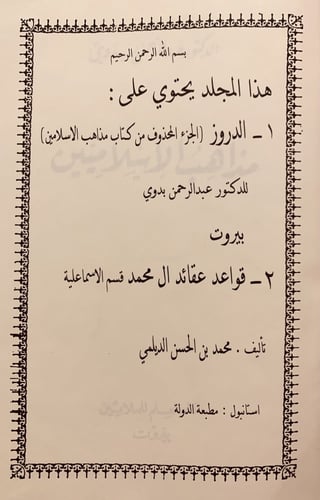 بسم الله الرحمن الرحيم
هذا المجلد يحتوي على :
١ ـ الدروز (الجزء المحذوف من كتاب مذاهب الاسلامين)
للدكتور عبدالرحمن بدوي
بيروت
٢ ـ قواعد عقائد ال محمد قسم الاسماعلية
تأليف . محمد بن الحسن الديلمي
استانبول : مطبعة الدولة